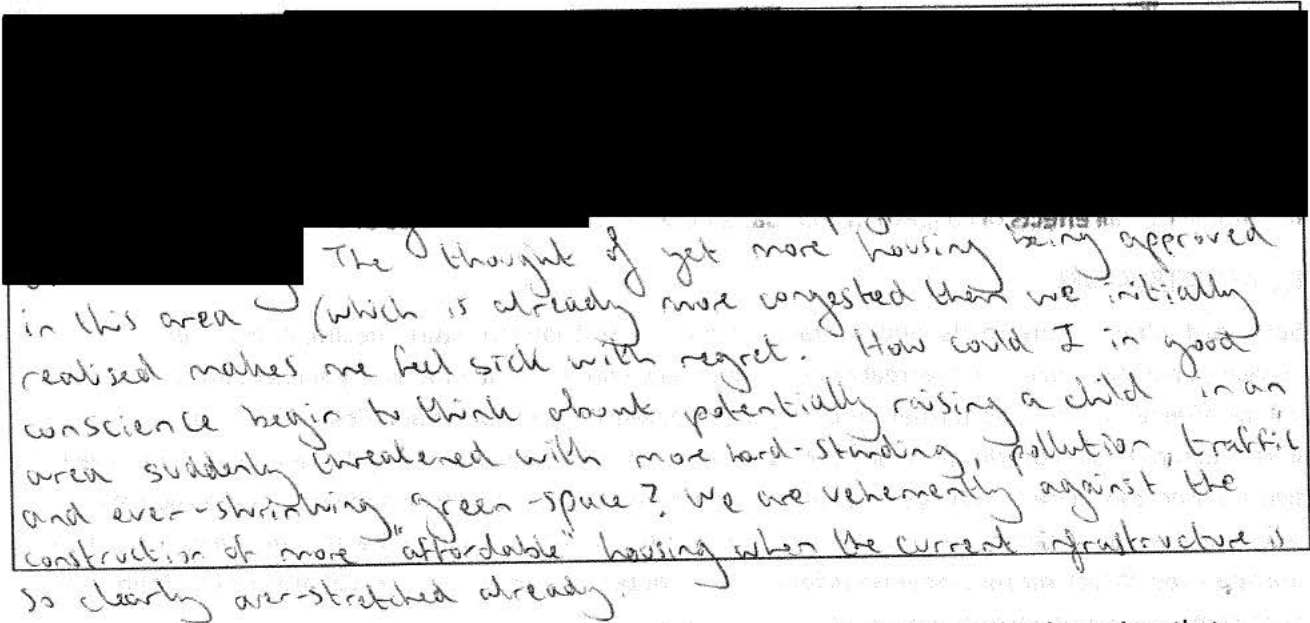 The thought of yet more housing being approved
in this area (which is already more congested than we initially
realised makes me feel sick with regret. How could I in good
conscience begin to think about potentially raising a child in an
area suddenly threatened with more hard-standing, pollution, traffic
and ever-shrinking green-space? We are vehemently against the
construction of more "affordable" housing when the current infrastructure is
so clearly over-stretched already.